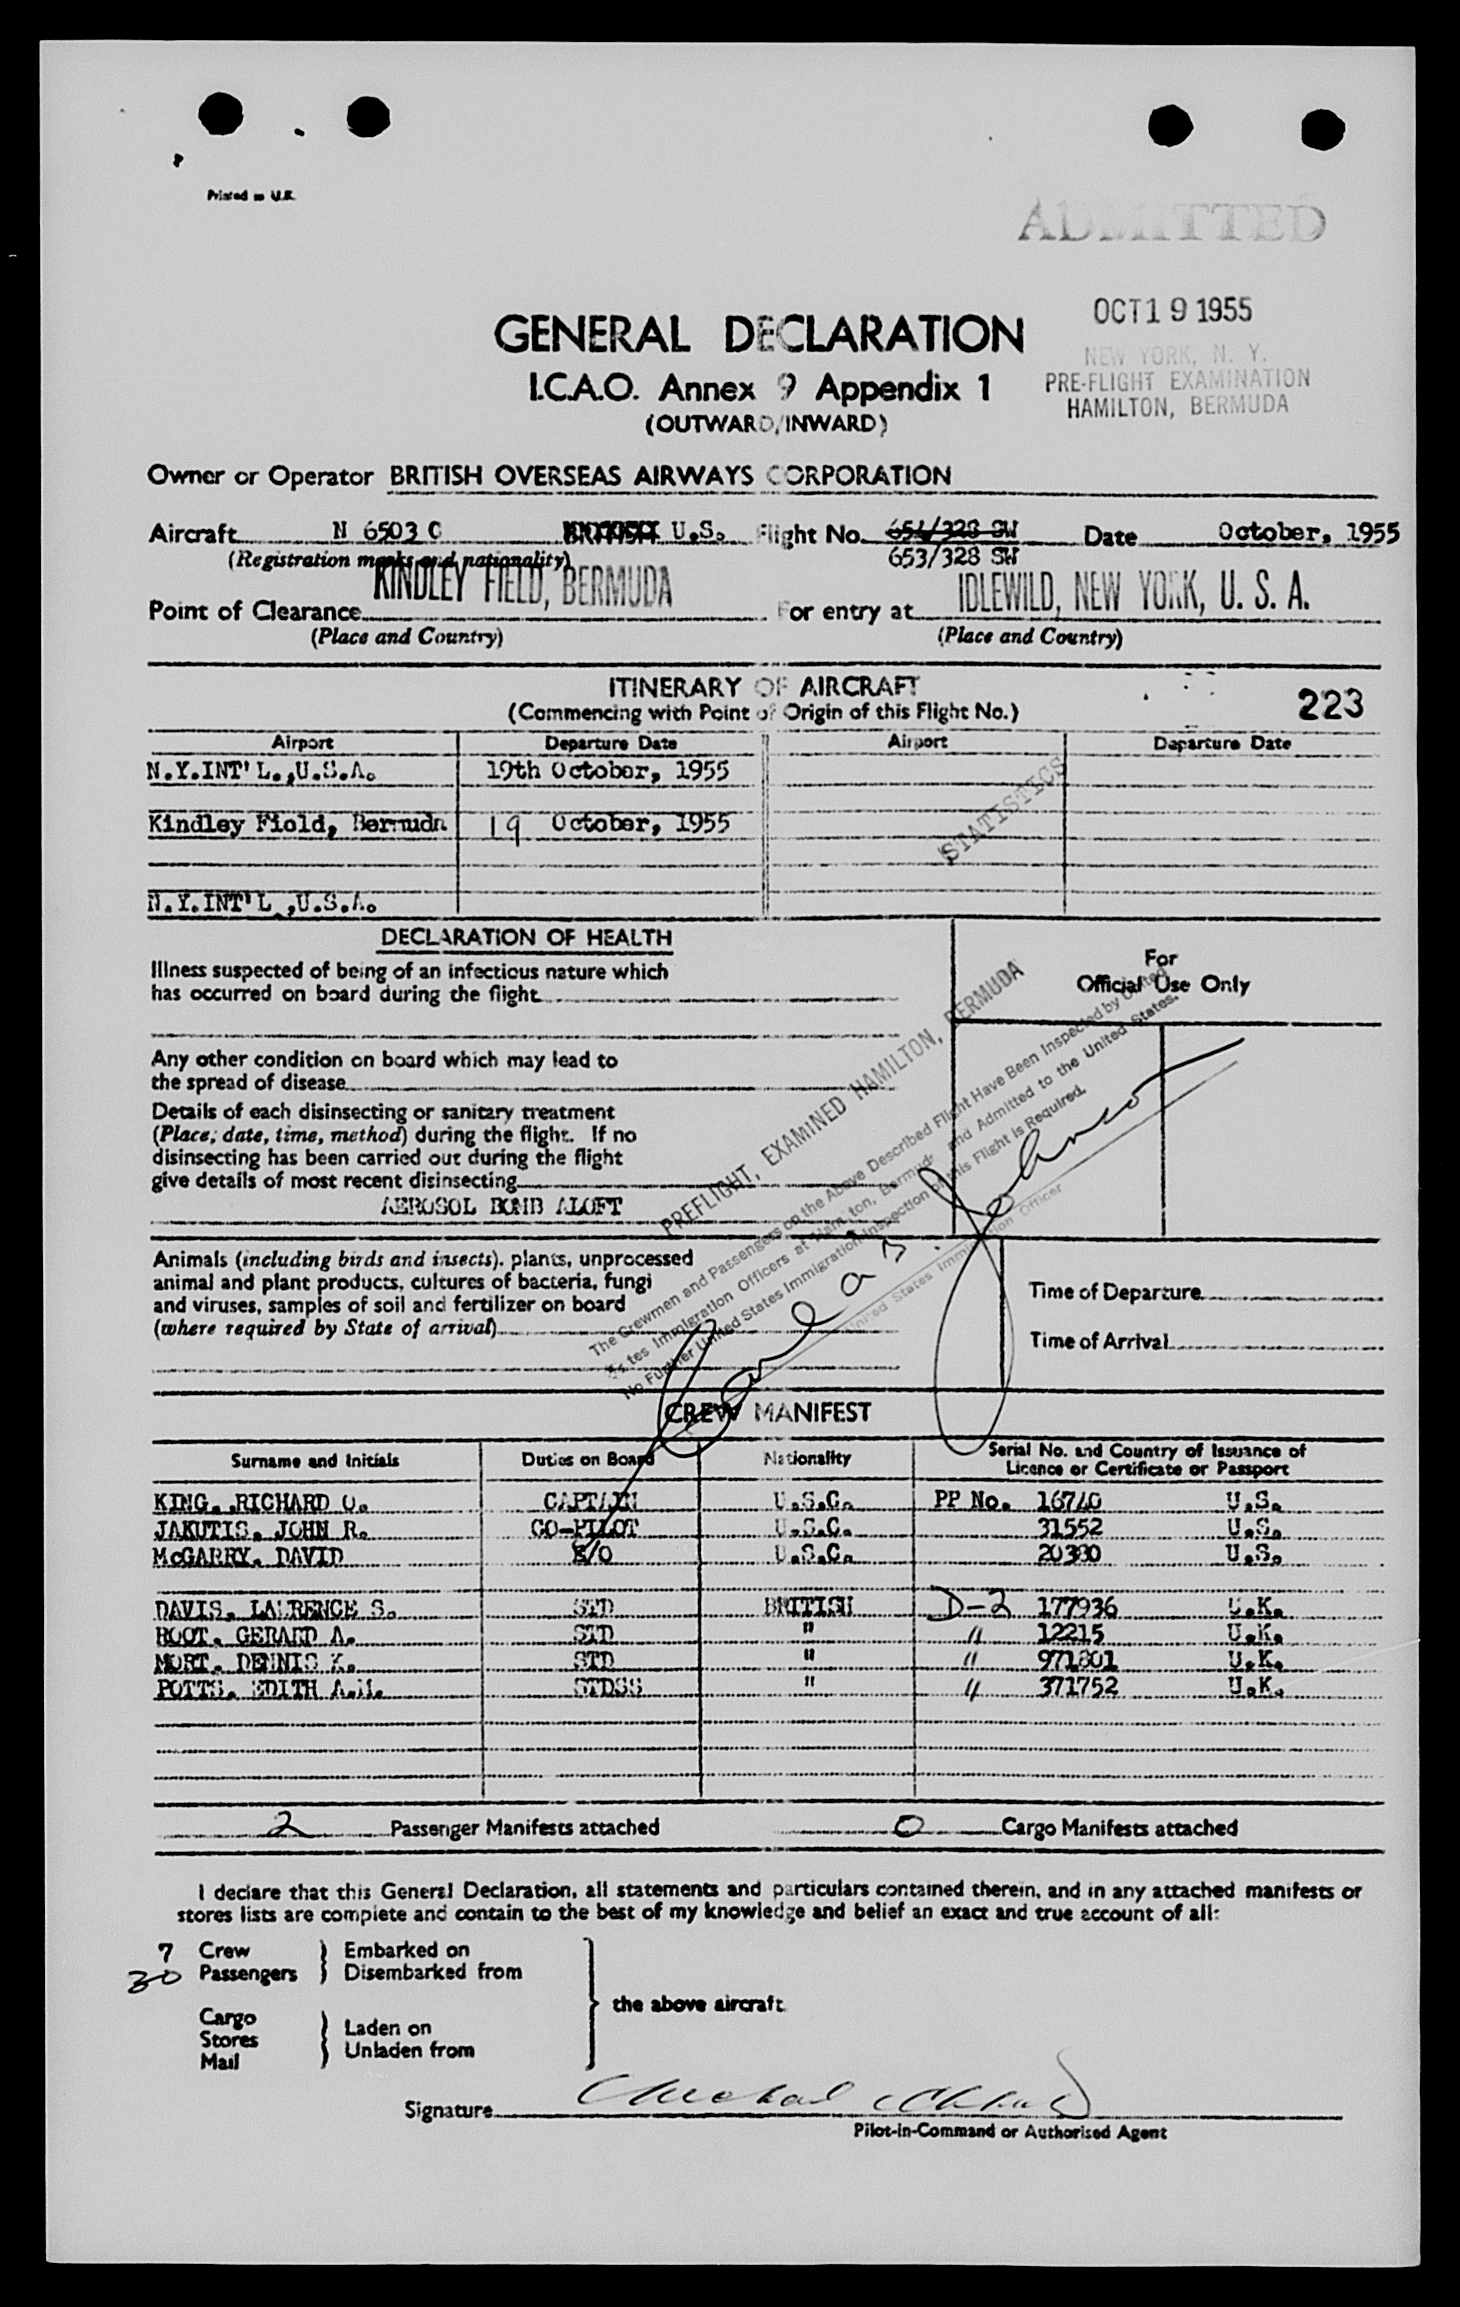 Printed in U.K.
ADMITTED
OCT 19 1955
NEW YORK, N. Y.
PRE-FLIGHT EXAMINATION
HAMILTON, BERMUDA
GENERAL DECLARATION
I.C.A.O. Annex 9 Appendix 1
(OUTWARD/INWARD)
Owner or Operator BRITISH OVERSEAS AIRWAYS CORPORATION
Aircraft N 6503 C BRITISH U.S. Flight No. 654/328 SW Date October, 1955
(Registration marks and nationality) 653/328 SW
Point of Clearance KINDLEY FIELD, BERMUDA For entry at IDLEWILD, NEW YORK, U. S. A.
(Place and Country) (Place and Country)
ITINERARY OF AIRCRAFT
(Commencing with Point of Origin of this Flight No.) 223
Airport Departure Date Airport Departure Date
N.Y.INT'L.,U.S.A. 19th October, 1955
STATISTICS
Kindley Field, Bermuda 19 October, 1955
N.Y.INT'L.,U.S.A.
DECLARATION OF HEALTH
For
Official Use Only
Illness suspected of being of an infectious nature which
has occurred on board during the flight
Any other condition on board which may lead to
the spread of disease
Details of each disinsecting or sanitary treatment
(Place, date, time, method) during the flight. If no
disinsecting has been carried out during the flight
give details of most recent disinsecting
AEROSOL BOMB ALOFT
PREFLIGHT, EXAMINED HAMILTON, BERMUDA
The Crewmen and Passengers on the Above Described Flight Have Been Inspected by United
States Immigration Officers at Hamilton, Bermuda and Admitted to the United States.
No Further United States Immigration Inspection of this Flight is Required.
United States Immigration Officer
Animals (including birds and insects), plants, unprocessed
animal and plant products, cultures of bacteria, fungi
and viruses, samples of soil and fertilizer on board
(where required by State of arrival)
Time of Departure
Time of Arrival
CREW MANIFEST
Surname and Initials Duties on Board Nationality Serial No. and Country of Issuance of
Licence or Certificate or Passport
KING, RICHARD O. CAPTAIN U.S.C. PP No. 16740 U.S.
JAKUTIS, JOHN R. CO-PILOT U.S.C. 31552 U.S.
McGARRY, DAVID E/O U.S.C. 20380 U.S.
DAVIS, LAURENCE S. STD BRITISH D-2 177936 U.K.
ROOT, GERARD A. STD " " 12215 U.K.
MORT, DENNIS K. STD " " 971801 U.K.
POTTS, EDITH A.M. STDSS " " 371752 U.K.
2 Passenger Manifests attached 0 Cargo Manifests attached
I declare that this General Declaration, all statements and particulars contained therein, and in any attached manifests or
stores lists are complete and contain to the best of my knowledge and belief an exact and true account of all:
7 Crew Embarked on
30 Passengers Disembarked from
the above aircraft
Cargo
Stores Laden on
Mail Unladen from
Signature
Pilot-in-Command or Authorised Agent